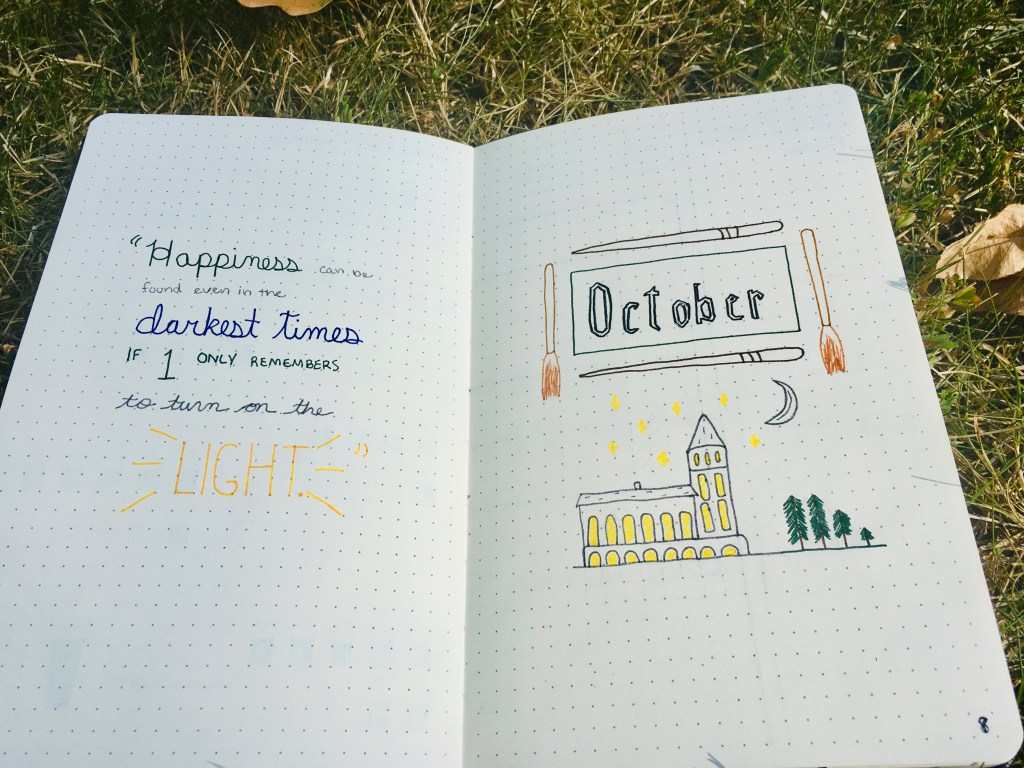 "Happiness can be
found even in the
darkest times
IF 1 ONLY REMEMBERS
to turn on the
LIGHT."
October
8